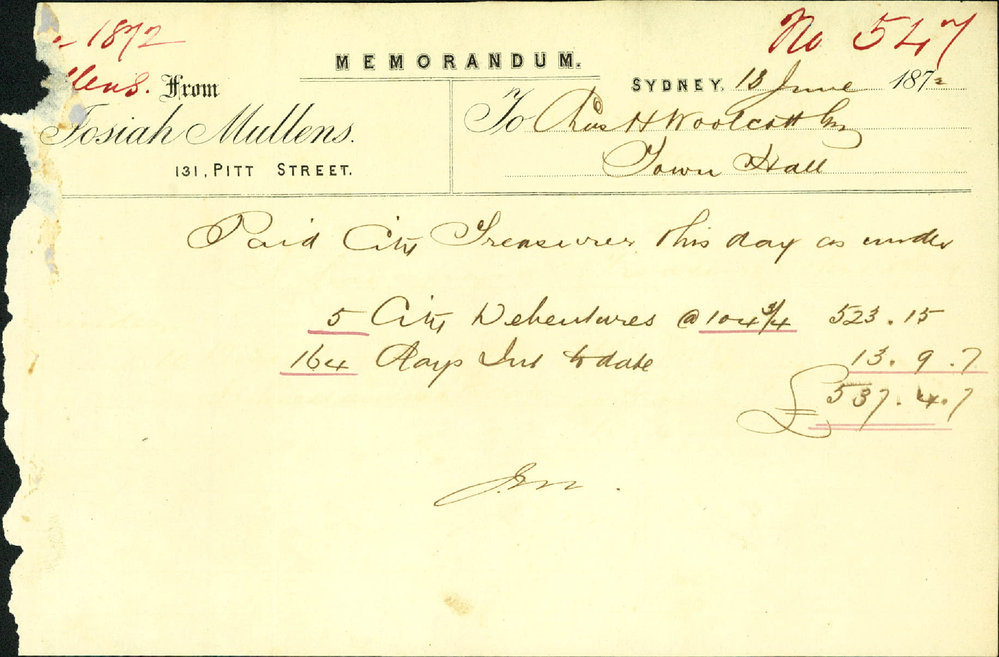 1872
No 547
MEMORANDUM.
llens. From
SYDNEY, 13 June 1872
Josiah Mullens.
To Chas H Woolcott Esq
131, PITT STREET.
Town Hall
Paid City Treasurer this day as under
5 City Debentures @ 104 3/4 523.15
164 days Int to date 13.9.7
£537.4.7